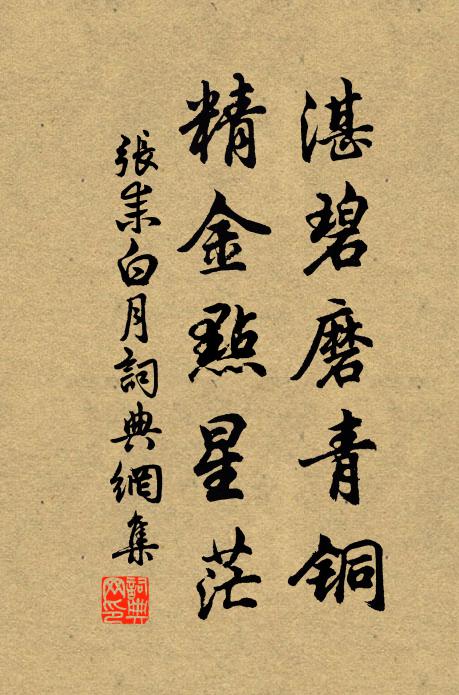 湛碧磨青铜
精金點星茫
張耒白月詞典網集
詞典网印